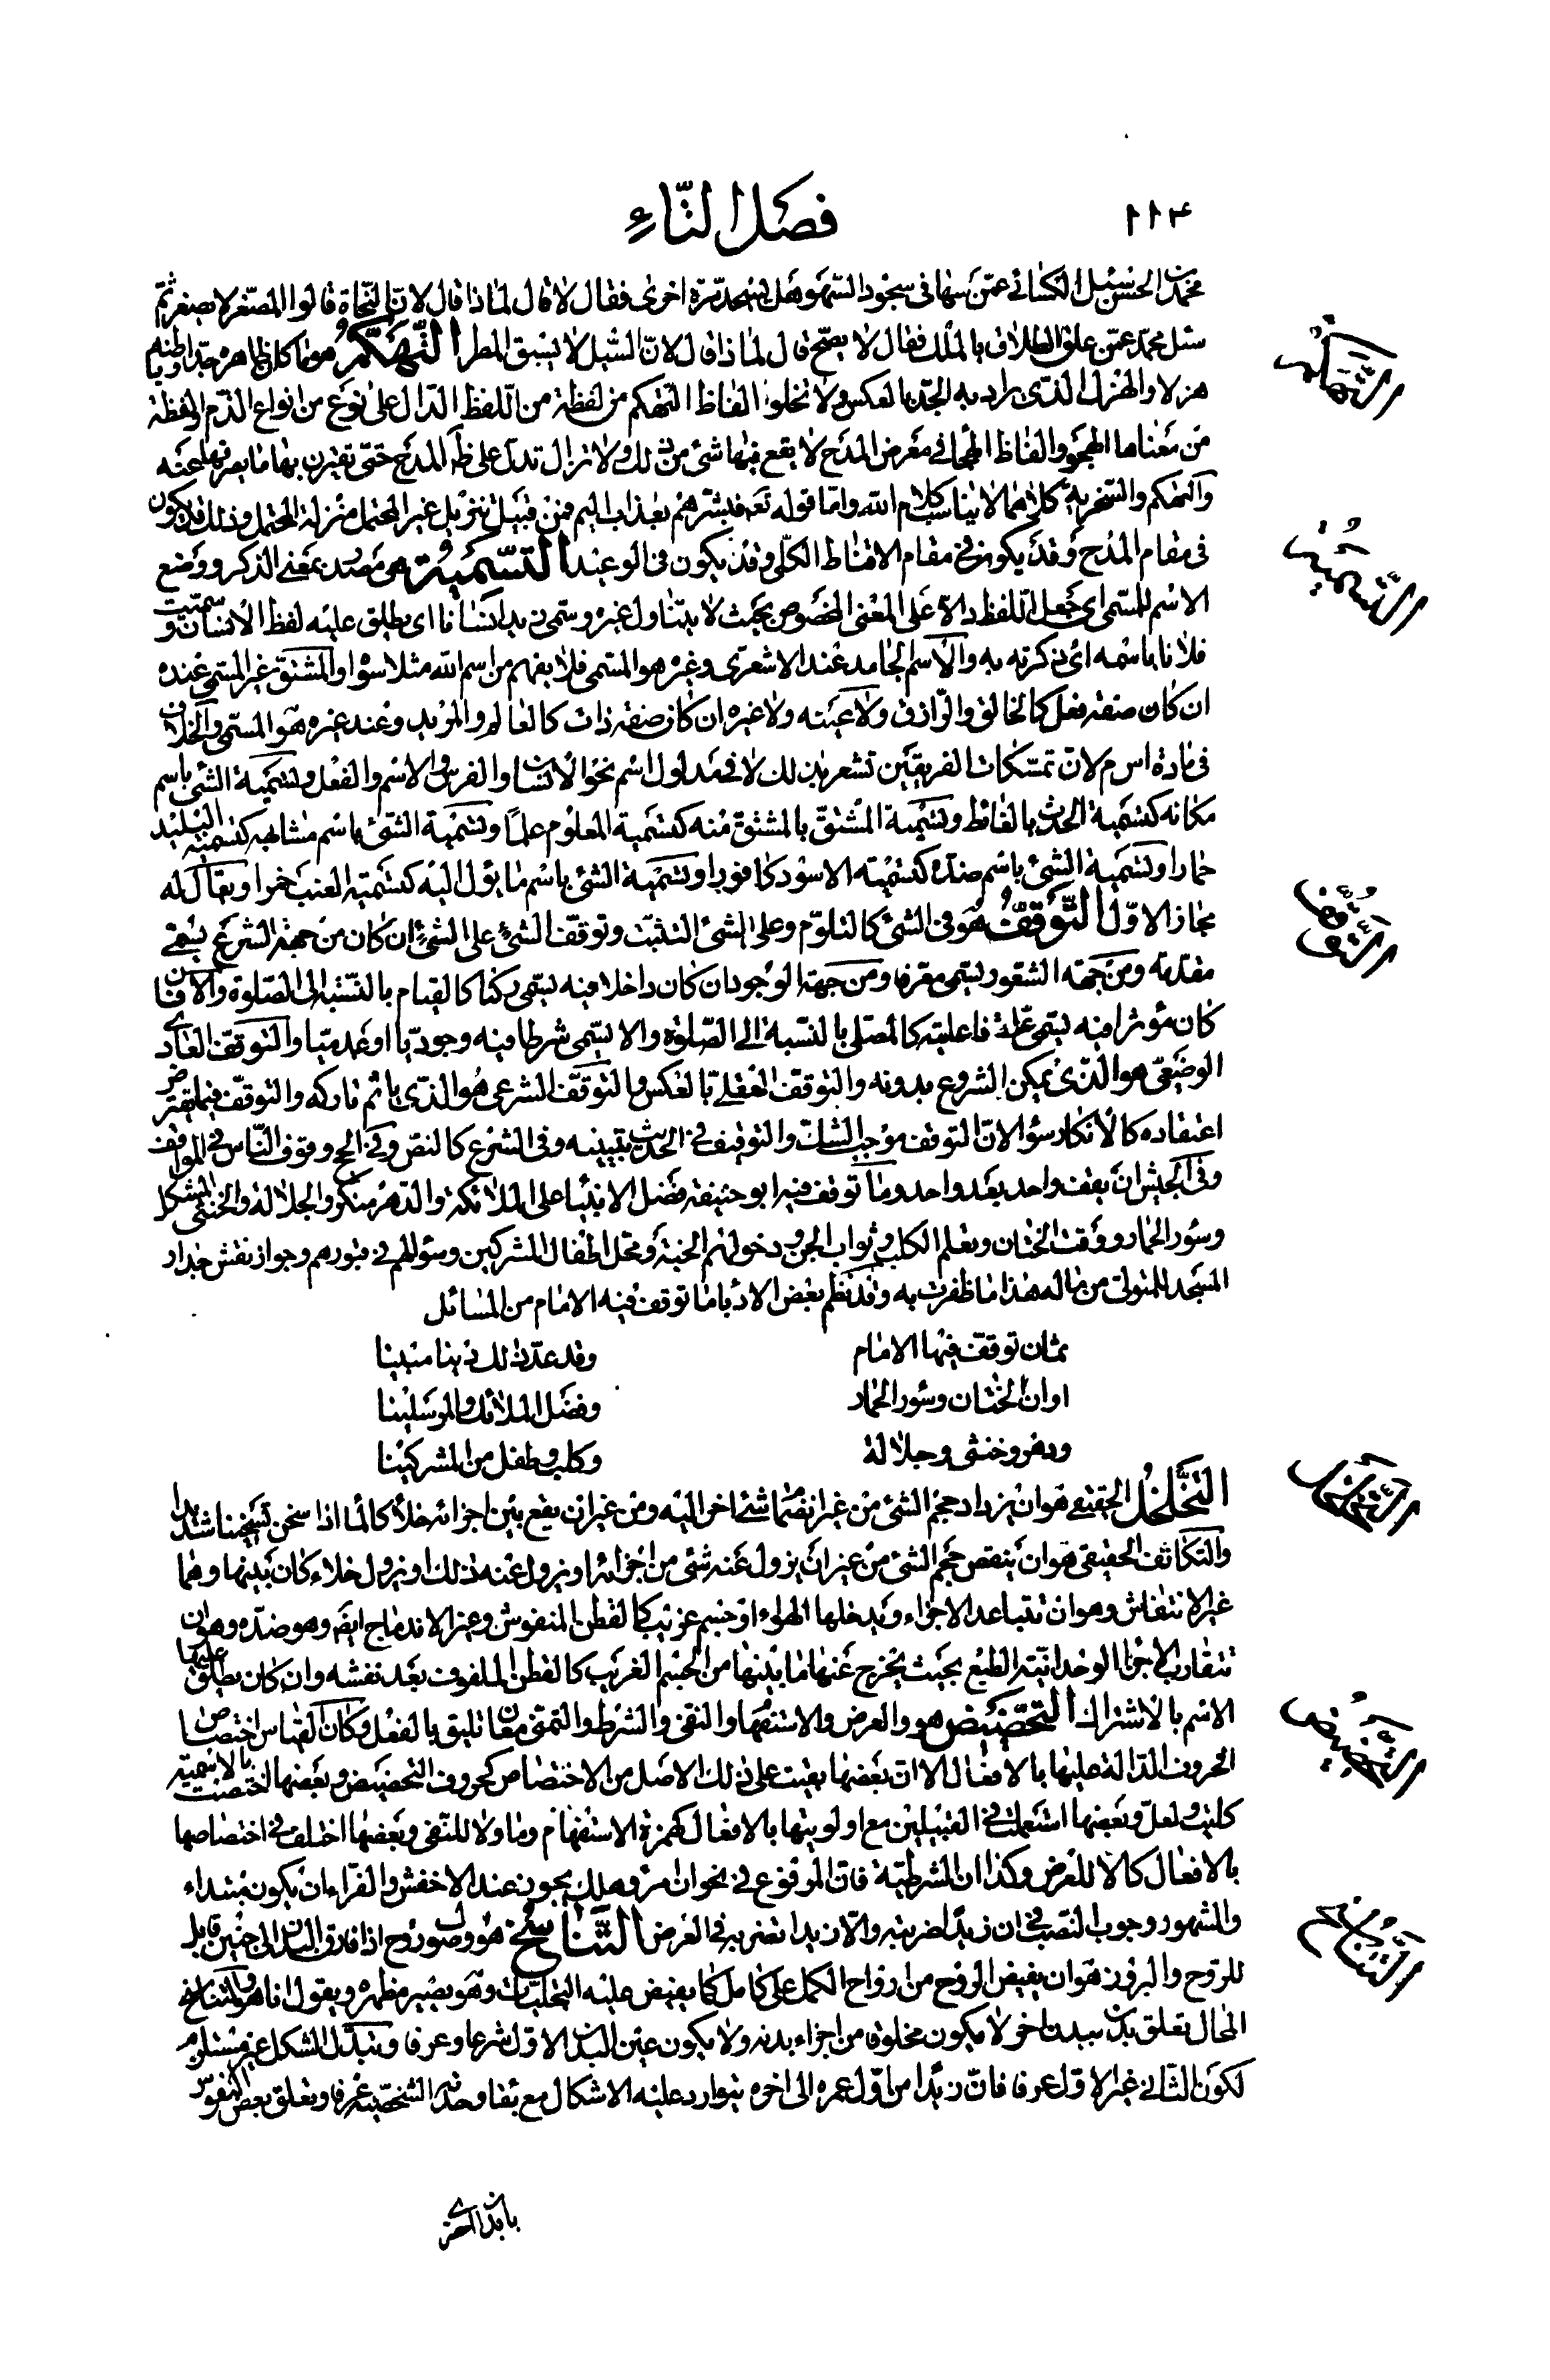 ١١٤
فصل التاء
محمد بن الحسن سئل الكسائي عمن سها في سجود السهو هل يسجد مرة اخرى فقال لا قال لماذا قال لان النحاة قالوا المصغر لا يصغر ثم
سئل محمد عمن علق الطلاق بالملك فقال لا يصح قال لماذا قال لان السيل لا يسبق المطر التَّهَكُّمُ هو ما كان ظاهره جدا وباطنه
هزلا والهزل الذى يراد به الجد بالعكس ولا تخلوا الفاظ التهكم من لفظة من اللفظ الدال على نوع من انواع الذم او لفظة
من معناها الهجو والفاظ الهجا في معرض المدح لا يقع فيها شئ من ذلك ولا تزال تدل على ظ المدح حتى تقترن بها ما يصرفها عنه
والتهكم والسخرية كلاهما لا يناسب كلام الله واما قوله تعه فبشرهم بعذاب اليم فمن قبيل تنزيل غير المحتمل منزلة المحتمل وذلك قد يكون
فى مقام المدح وقد يكون في مقام الاقناط الكلى وقد يكون فى الوعيد التَّسْمِيَة هى مصدر بمعنى الذكر ووضع
الاسم للمسمى اى جعل اللفظ دالا على المعنى المخصوص بحيث لا يتناول غيره وسمى زيد انسانا اى يطلق عليه لفظ الانسان وسميت
فلانا باسمه اى ذكرته به والاسم الجامد عند الاشعرى وغيره هو المسمى فلا يفهم من اسم الله مثلا سواه والمشتق غير المسمى عنده
ان كان صفة فعل كالخالق والرازق ولا عينه ولا غيره ان كان صفة ذات كالعالم والمريد وعند غيره هو المسمى والخلاف
فى مادة اس م لان تمسكات الفريقين تشعر بذلك لا في مدلول اسم نحو الانسان والفرس والاسم والفعل وتسمية الشئ باسم
مكانه كتسمية الحدث بالغائط وتسمية المشتق بالمشتق منه كتسمية المعلوم علما وتسمية الشئ باسم مشابهه كتسمية البليد
حمارا وتسمية الشئ باسم ضده كتسميته الاسود كافورا وتسمية الشئ باسم ما يؤل اليه كتسمية العنب خمرا ويقال له
مجاز الاول التَّوَقُّفُ هو فى الشئ كالتلوم وعلى الشئ التثبت وتوقف الشئ على الشئ ان كان من جهة الشرع يسمى
مقدمة ومن جهة الشعور يسمى معرفا ومن جهة الوجود ان كان داخلا فيه يسمى ركنا كالقيام بالنسبة الى الصلوة والا فان
كان مؤثرا فيه يسمى علة فاعلية كالمصلى بالنسبة الى الصلوة والا يسمى شرطا فيه وجوديا او عدميا والتوقف العادى
الوضعى هو الذى يمكن الشروع بدونه والتوقف العقلى بالعكس والتوقف الشرعى هو الذى ياثم تاركه والتوقف فيما يفترض
اعتقاده كالانكار سواء لان التوقف موجب الشك والتوقيف في الحديث تبيينه وفى الشرع كالنص وفي الحج وقوف الناس في المواقف
وفى الجيش ان يقف واحد بعد واحد وما توقف فيه ابو حنيفة فضل الانبيا على الملائكة والدهر منكرو الجلالة والخنثى المشكل
وسؤر الحمار ووقت الختان وتعلم الكلب وثواب الجن ودخولهم الجنة ومحل اطفال المشركين وسؤالهم في قبورهم وجواز نقش جدار
المسجد للمتولى من ماله هذا ما ظفرت به وقد نظم بعض الادبا ما توقف فيه الامام من المسائل
ثمان توقف فيها الامام وقد عد ذلك دينا مبينا
اوان الختان وسؤر الحمار وفضل الملائك والمرسلينا
ودهر وخنثى وجلالة وكلب وطفل من المشركينا
التَّخَلْخُلُ الحقيقى هو ان يزداد حجم الشئ من غير انضمام شئ اخر اليه ومن غير ان يقع بين اجزائه خلأ كالماء اذا سخن تسخينا شديدا
والتكاثف الحقيقى هو ان ينقص حجم الشئ من غير ان يزول عنه شئ من اجزائه او يزول عنه ذلك او يزول خلاء كان بينها وهما
غير الانتفاش وهو ان تتباعد الاجزاء ويدخلها الهواء او جسم غريب كالقطن المنفوش وغير الاندماج ايضه وهو ضده وهو ان
تتقارب الاجزا الوحدانية الطبع بحيث يخرج عنها ما بينها من الجسم الغريب كالقطن الملفوف بعد نفشه وان كان يطلق عليها
الاسم بالاشتراك التَّحْضِيْض هو والعرض والاستفهام والنفى والشرط والتمنى معان تليق بالفعل وكان القياس اختصاص
الحروف الدالة عليها بالافعال الا ان بعضها بقيت على ذلك الاصل من الاختصاص كحروف التحضيض وبعضها اختصت بالاسمية
كليت ولعل وبعضها استعملت في القبيلين مع اولويتها بالافعال كهمزة الاستفهام وما ولا للنفى وبعضها اختلف في اختصاصها
بالافعال كالا للعرض وكذا ان الشرطية فان المرفوع في نحو ان امرؤ هلك يجوز عند الاخفش والفراء ان يكون مبتداء
والمشهور وجوب النصب في ان زيدا ضربته والا زيدا تضربه فى العرض التَّنَاسُخ هو وصول روح اذا فارق البدن الى جنين قابل
للروح والبروز هو ان يفيض الروح من ارواح الكمل على كامل كما يفيض عليه التجليات وهو يصير مظهره ويقول انا هو والتناسخ
المحال تعلق بدن ببدن اخر لا يكون مخلوقا من اجزاء بدنه ولا يكون عين البدن الاول شرعا وعرفا وتبدل الشكل غير مستلزم
لكون الثانى غير الاول عرفا فان زيدا من اول عمره الى اخره يتوارد عليه الاشكال مع بقاء وحدته الشخصية عرفا وتعلق بعض النفوس
التَّهَكُّمُ
التَّسْمِيَةُ
التَّوَقُّفُ
التَّخَلْخُلُ
التَّحْضِيْضُ
التَّنَاسُخُ